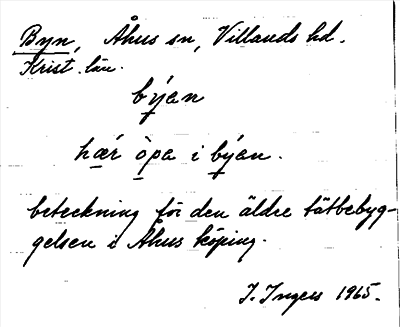 Byn, Åhus sn, Villands hd.
Krist. län.
býen
hǽr òpa i býen.
beteckning för den äldre tätbebyg-
gelsen i Åhus köping.
I. Ingers 1965.